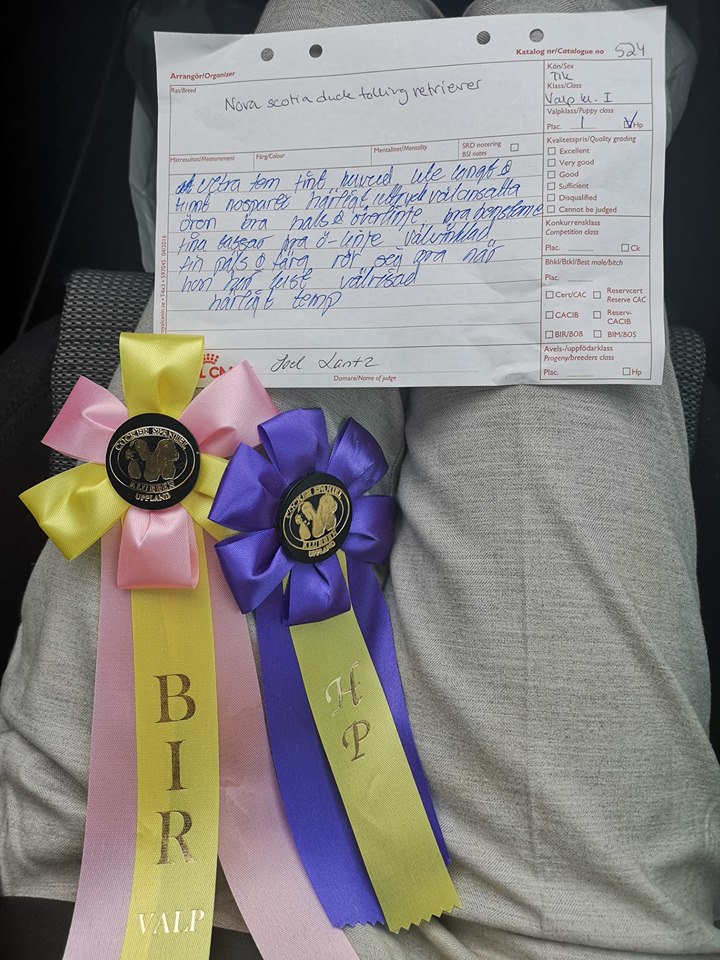 Katalog nr/Catalogue no 524
Arrangör/Organizer
Ras/Breed
Nova scotia duck tolling retriever
Kön/Sex
Tik
Klass/Class
Valp kl. I
Valpklass/Puppy class
Plac. 1 Hp
Mätresultat/Measurement
Färg/Colour
Mentalitet/Mentality
SRD notering
BSI notes
Kvalitetspris/Quality grading
Excellent
Very good
Good
Sufficient
Disqualified
Cannot be judged
fint huvud
nosparti härligt uttryck välansatta
öron bra hals o överlinje bra benstomme
fina tassar bra ö-linje välvinklad
fin päls o färg rör sig bra när
hon
härligt temp
Konkurrensklass
Competition class
Plac. Ck
Bhkl/Btkl/Best male/bitch
Plac.
Cert/CAC
Reservcert
Reserve CAC
CACIB
Reserv-
CACIB
BIR/BOB
BIM/BOS
Avels-/uppfödarklass
Progeny/breeders class
Plac. Hp
Joel Lantz
Domare/Name of judge
COCKER SPANIEL
KLUBBEN
UPPLAND
COCKER SPANIEL
KLUBBEN
UPPLAND
BIR
VALP
HP